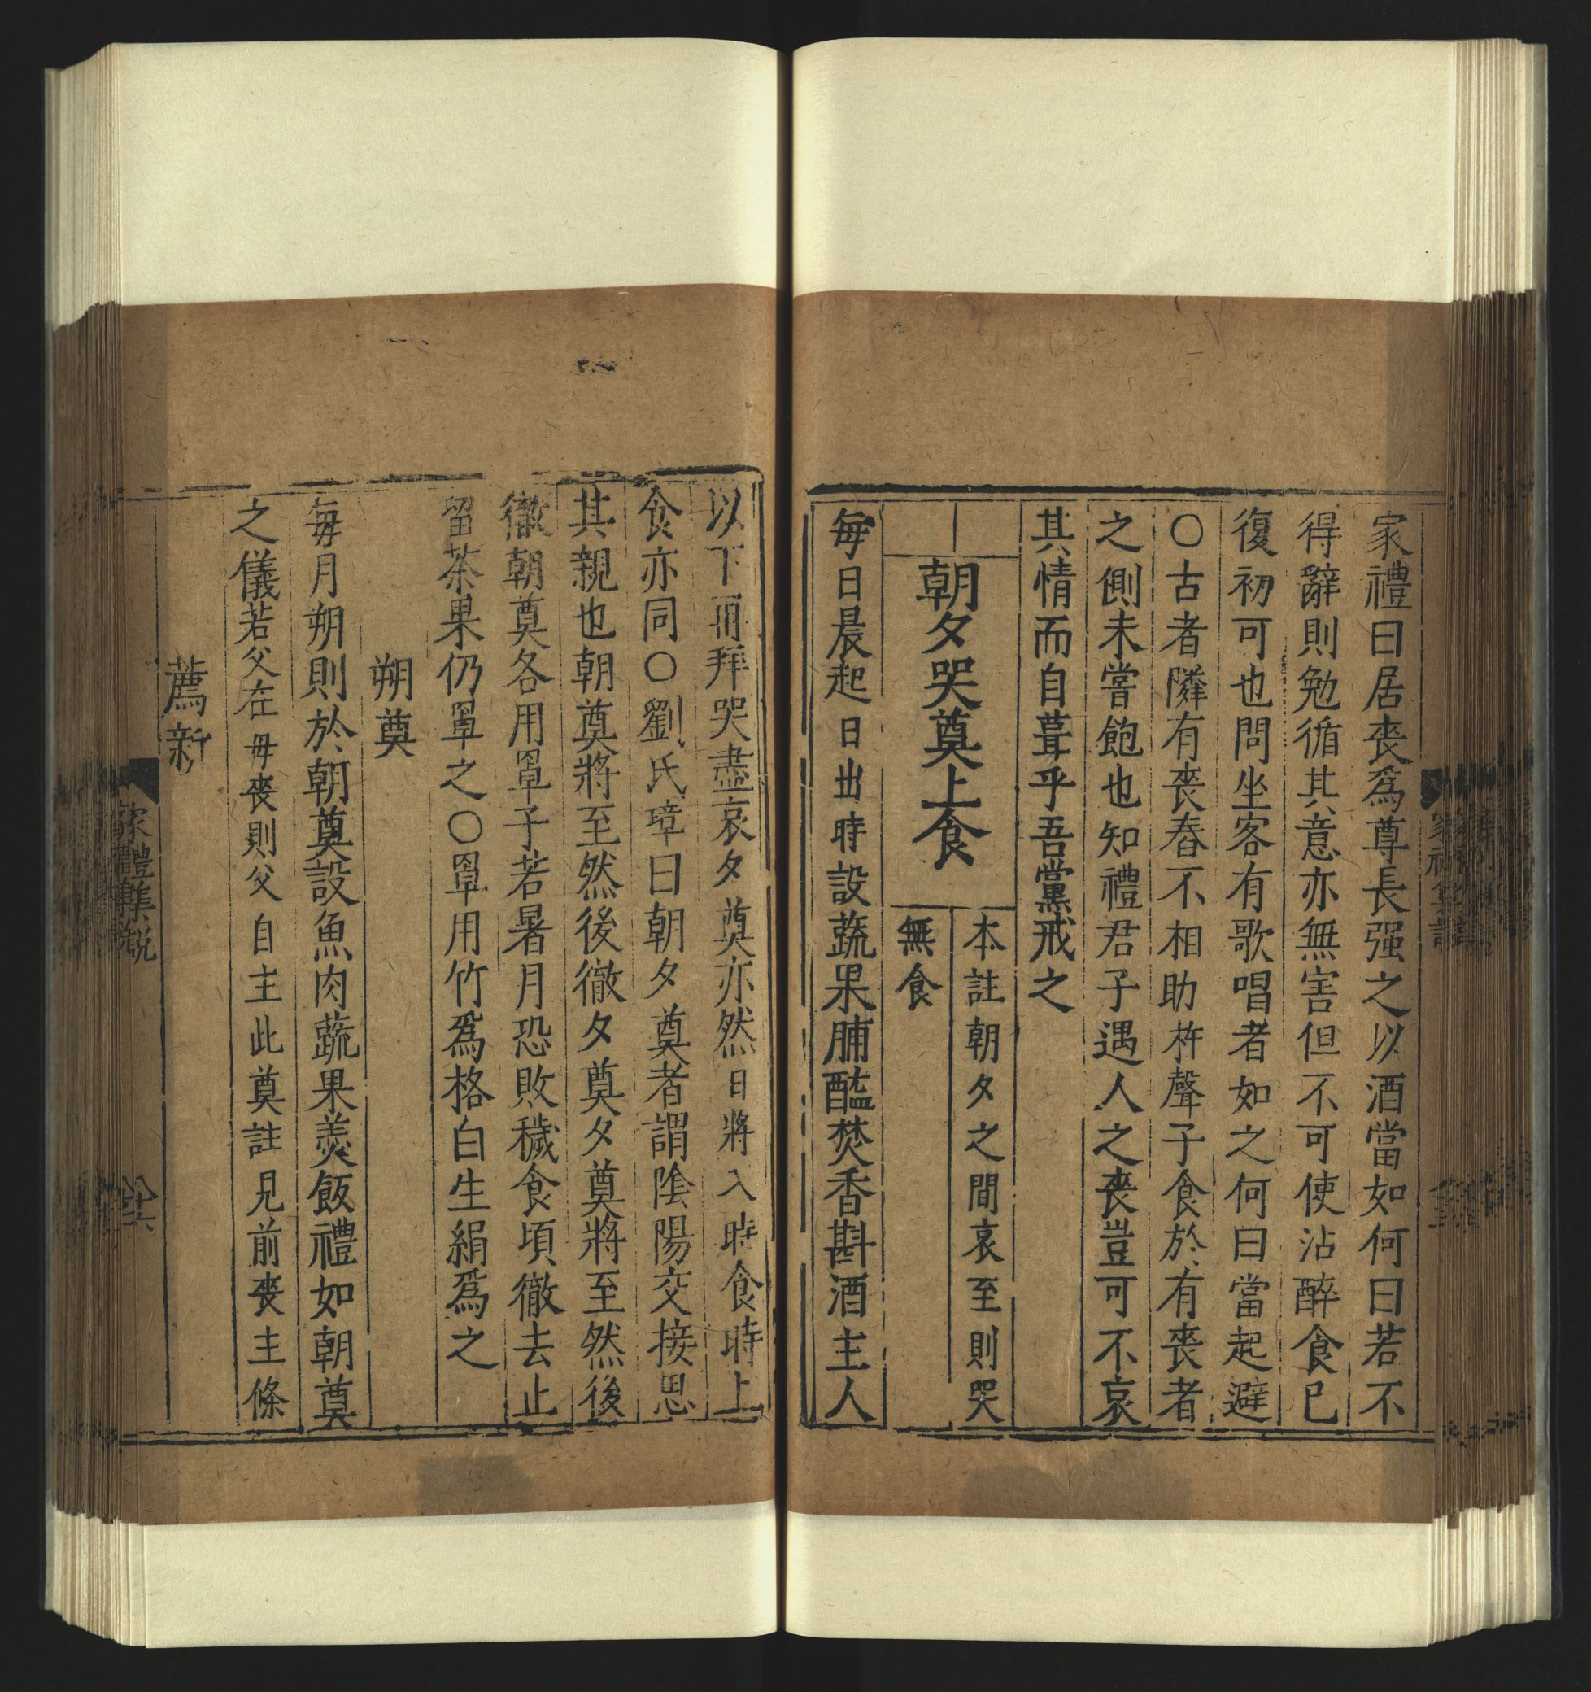 家禮曰居喪爲尊長强之以酒當如何曰若不
得辭則勉循其意亦無害但不可使沾醉食已
復初可也問坐客有歌唱者如之何曰當起避
○古者隣有喪舂不相助杵聲子食於有喪者
之側未嘗飽也知禮君子遇人之喪豈可不哀
其情而自葺乎吾黨戒之
朝夕哭奠上食
本註朝夕之間哀至則哭
無食
每日晨起日出時設蔬果脯醢焚香斟酒主人
以下再拜哭盡哀夕奠亦然日將入時食時上
食亦同○劉氏璋曰朝夕奠者謂陰陽交接思
其親也朝奠將至然後徹夕奠夕奠將至然後
徹朝奠各用罩子若暑月恐敗穢食頃徹去止
留茶果仍罩之○罩用竹爲格白生絹爲之
朔奠
每月朔則於朝奠設魚肉蔬果羮飯禮如朝奠
之儀若父在母喪則父自主此奠註見前喪主條
薦新
家禮集說